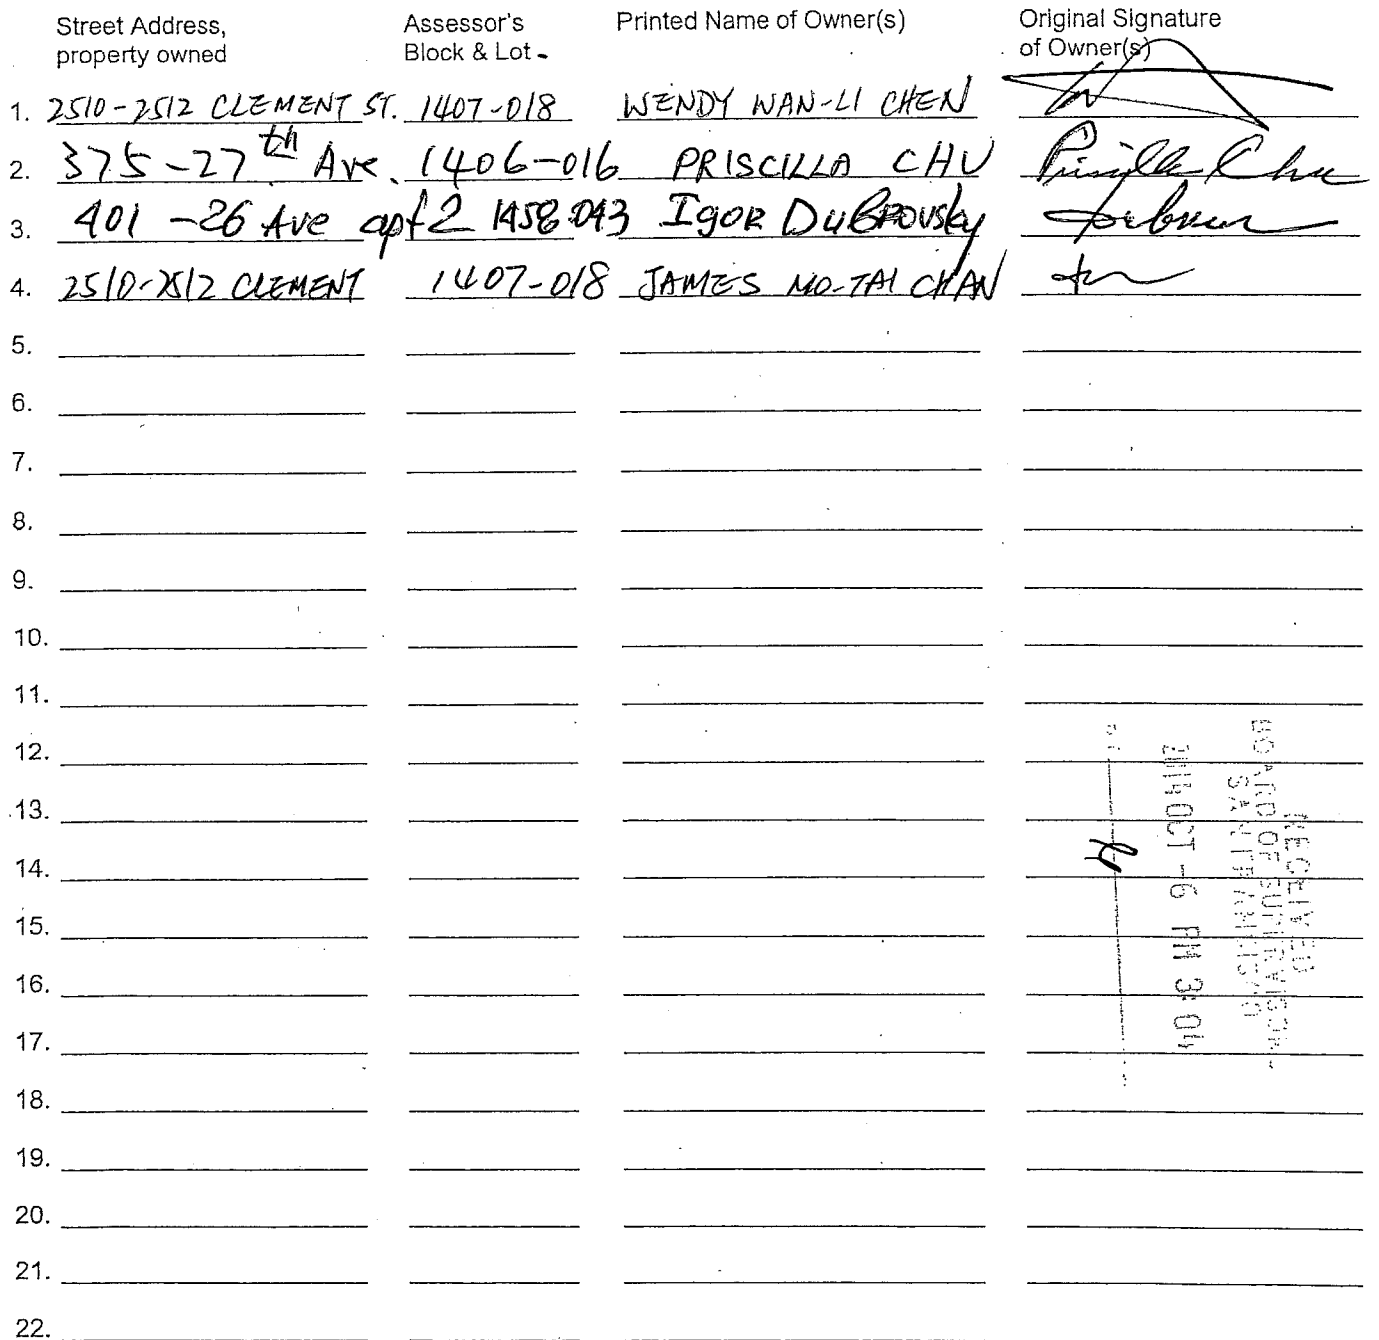 Street Address, property owned Assessor's Block & Lot Printed Name of Owner(s) Original Signature of Owner(s)
1. 2510-2512 CLEMENT ST. 1407-018 WENDY WAN-LI CHEN
2. 375-27th Ave. 1406-016 PRISCILLA CHU Priscilla Chu
3. 401-26 Ave apt 2 1458 043 Igor Dubrovsky
4. 2510-2512 CLEMENT 1407-018 JAMES MO-TAI CHAN
5.
6.
7.
8.
9.
10.
11.
12.
13.
14.
15.
16.
17.
18.
19.
20.
21.
22.
RECEIVED
BOARD OF SUPERVISORS
SAN FRANCISCO
2014 OCT -6 PM 3:04